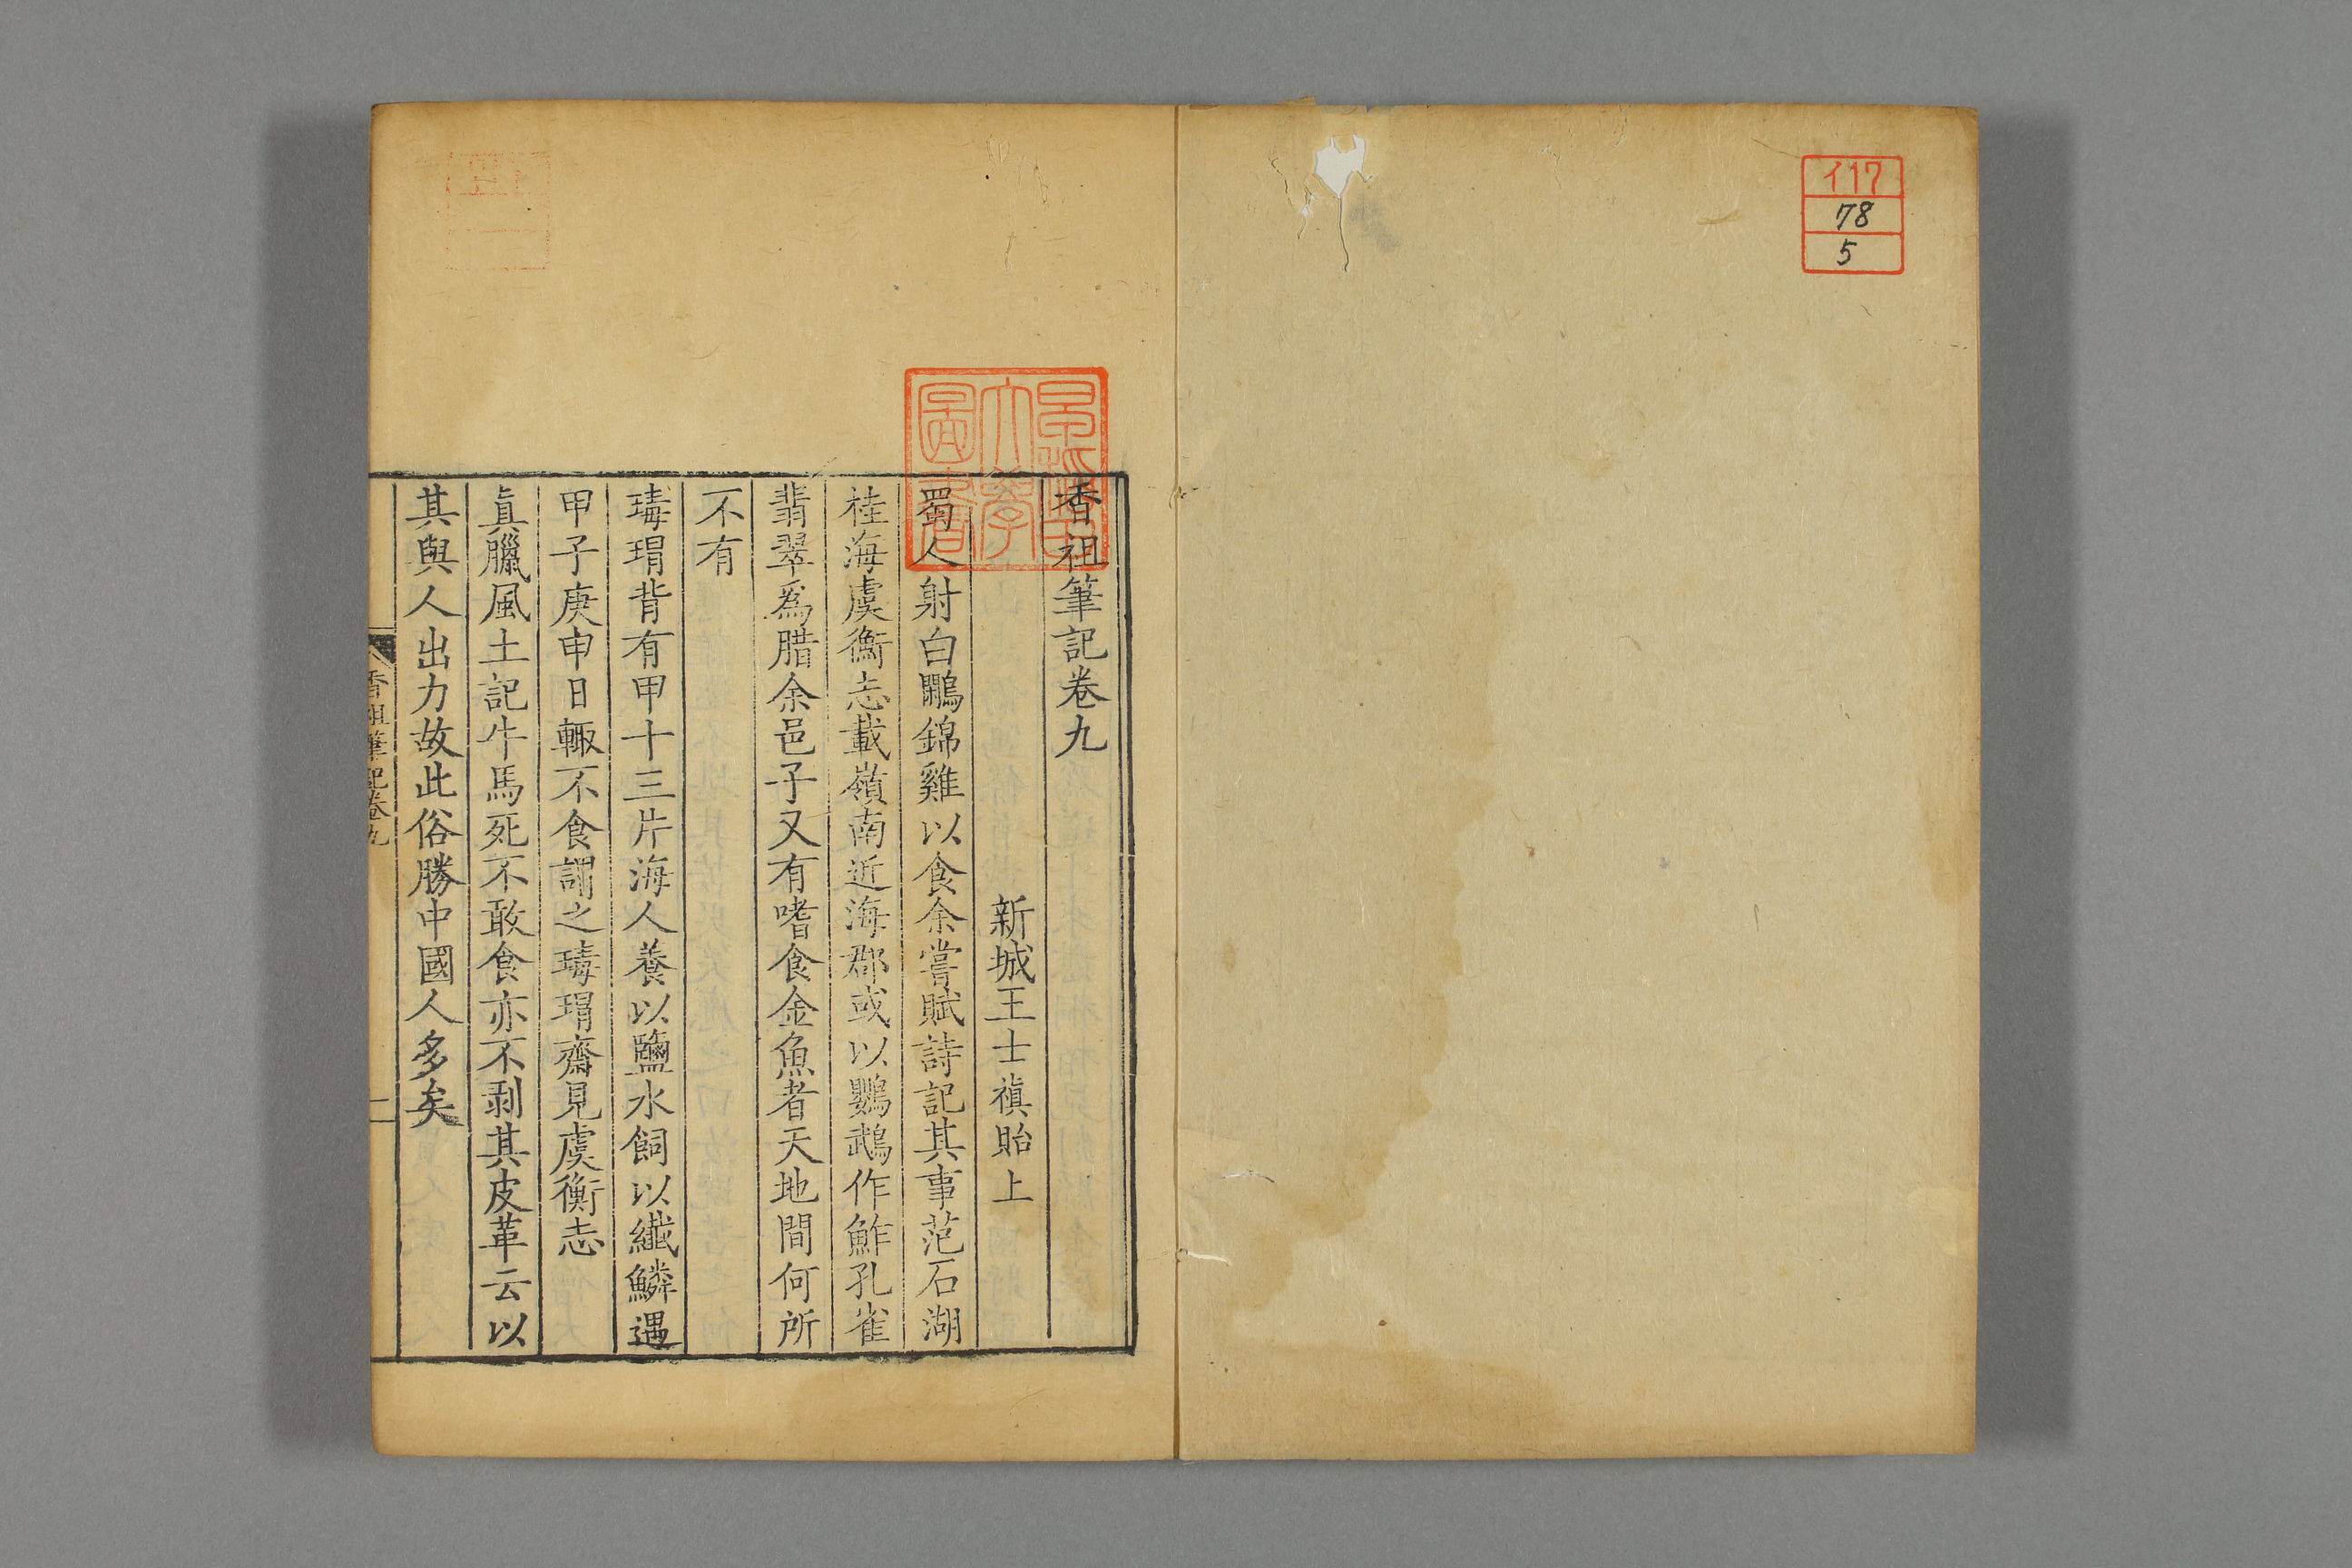 イ17
78
5
早稲田大學圖書
香祖筆記卷九
新城王士禛貽上
蜀人射白鷴錦雞以食余嘗賦詩記其事范石湖
桂海虞衡志載嶺南近海郡或以鸚鵡作鮓孔雀
翡翠爲腊余邑子又有嗜食金魚者天地間何所
不有
瑇瑁背有甲十三片海人養以鹽水飼以纖鱗遇
甲子庚申日輙不食謂之瑇瑁齋見虞衡志
真臘風土記牛馬死不敢食亦不剥其皮革云以
其與人出力故此俗勝中國人多矣
香祖筆記卷九
一